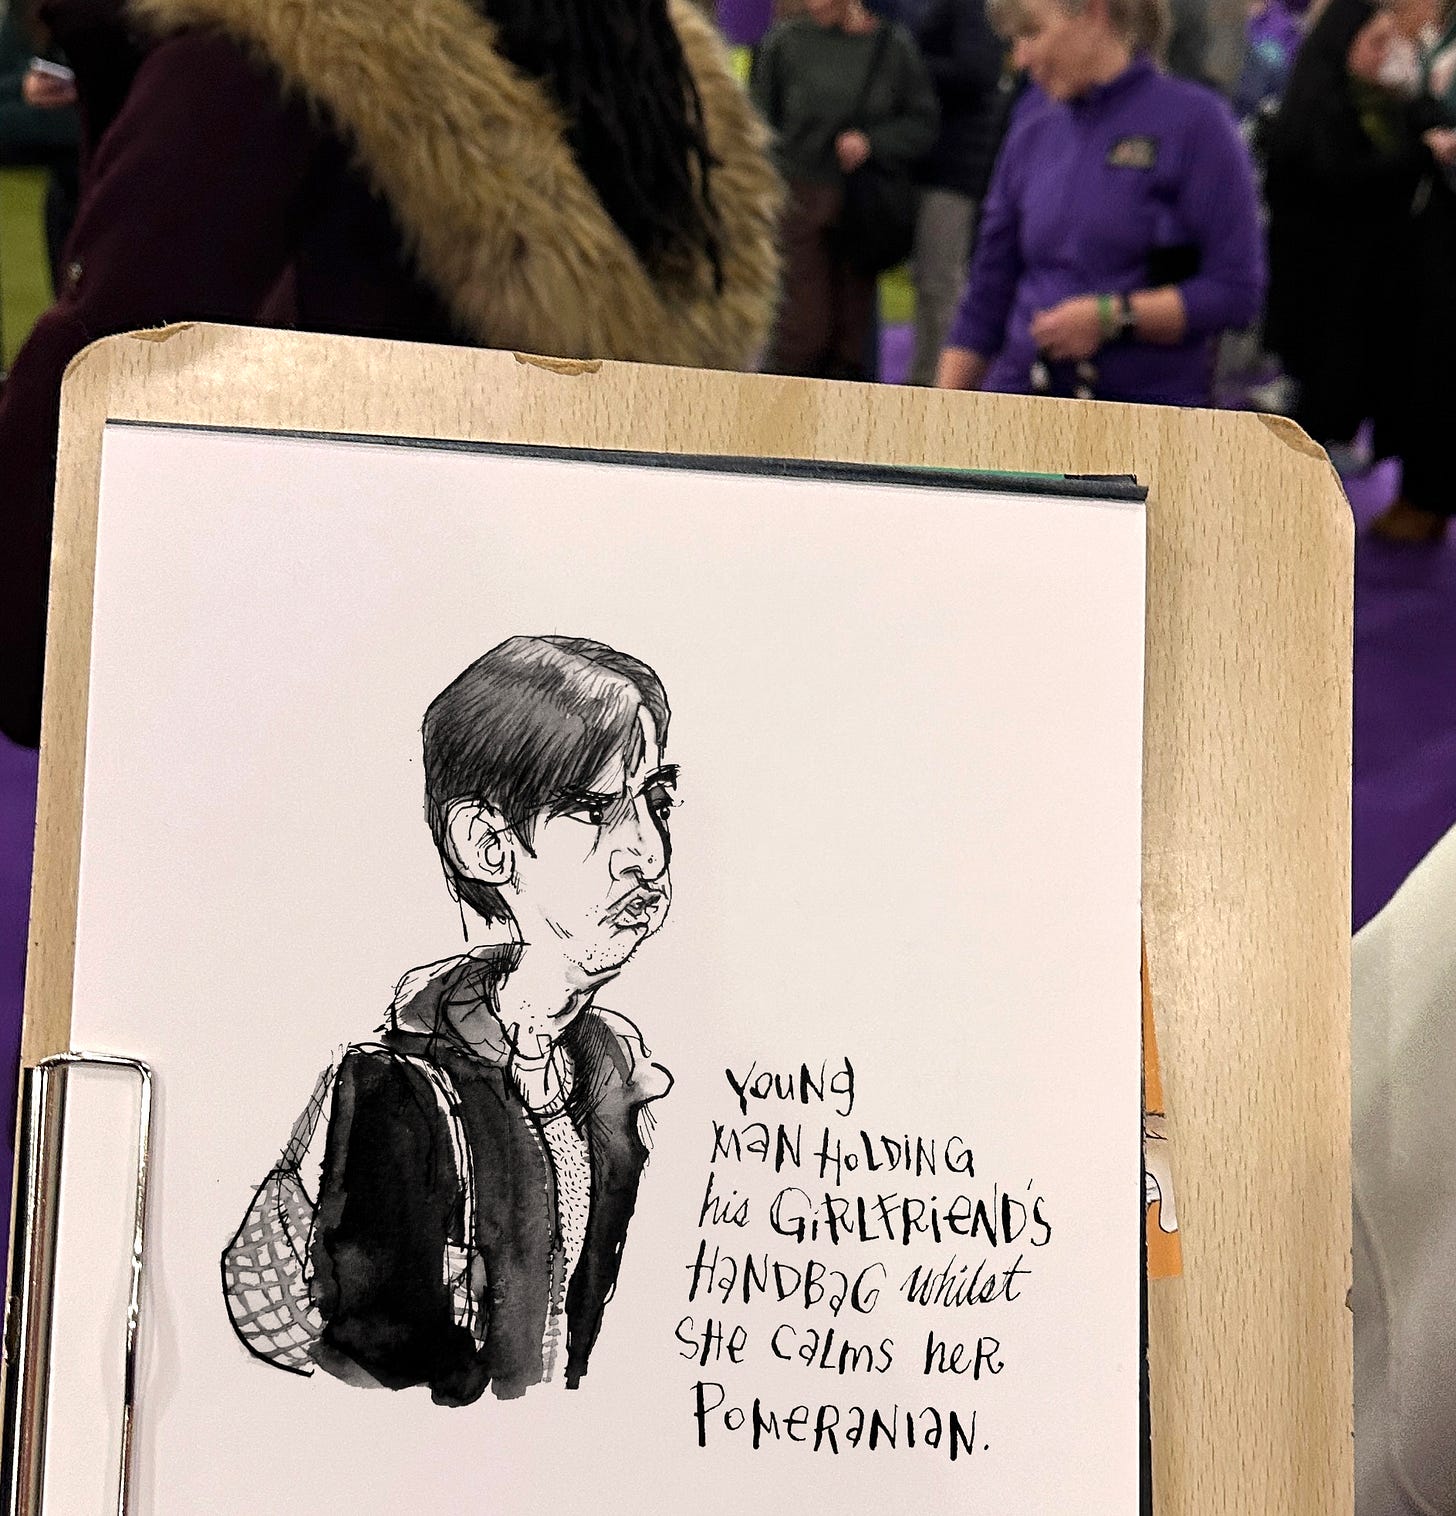 YOUNG
MAN HOLDING
his GIRLFRIEND'S
HANDBAG whilst
SHE CALMS HER
POMERANIAN.